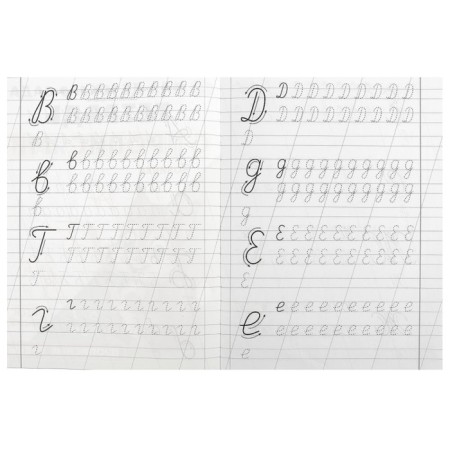 В В В В В В В В В В В В
В В В В В В В В В В В
В
в в в в в в в в в в в в
в в в в в в в в в в в
в
Г Г Г Г Г Г Г Г Г Г
Г Г Г Г Г Г Г Г Г
Г
г г г г г г г г г г г
г г г г г г г г г г
г
Д Д Д Д Д Д Д Д Д Д
Д Д Д Д Д Д Д Д Д
Д
д д д д д д д д д д д
д д д д д д д д д д
д
Е Е Е Е Е Е Е Е Е Е
Е Е Е Е Е Е Е Е Е
Е
е е е е е е е е е е е
е е е е е е е е е е
е